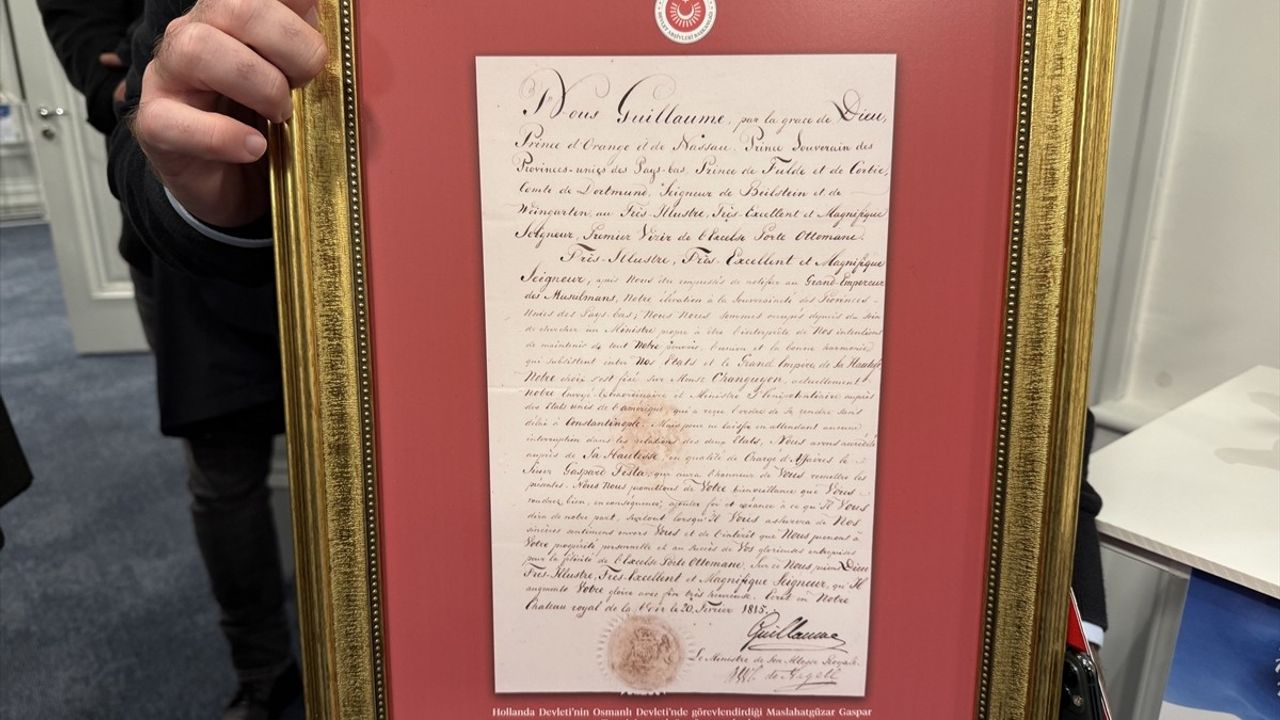 DEVLET ARŞİVLERİ BAŞKANLIĞI
Nous Guillaume, par la grace de Dieu,
Prince d'Orange et de Nassau, Prince Souverain des
Provinces-unies des Pays-bas, Prince de Fulde et de Corbie,
Comte de Dortmund, Seigneur de Beilstein et de
Weingarten, au Très-Illustre, Très-Excellent et Magnifique
Seigneur, Premier Vizir de l'Excelse Porte Ottomane.
Très-Illustre, Très-Excellent et Magnifique
Seigneur, après Nous être empressés de notifier au Grand-Empereur
des Musulmans, Notre élévation à la Souveraineté des Provinces-
Unies des Pays-bas; Nous Nous sommes occupés depuis du soin
de chercher un Ministre propre à être l'interprète de Nos intentions
de maintenir de tout Notre pouvoir, l'union et la bonne harmonie
qui subsistent entre Nos Etats et le Grand Empire de Sa Hautesse.
Notre choix s'est fixé sur Monsr. Changuyon, actuellement
Notre Envoyé Extraordinaire et Ministre Plénipotentiaire auprès
des états unis de l'amérique, qui a reçu l'ordre de se rendre sans
délai à Constantinople. Mais pour ne laisser en attendant aucune
interruption dans les relations des deux Etats, Nous avons accrédité
auprès de Sa Hautesse, en qualité de Chargé d'Affaires le
Sieur Gaspard Testa, qui aura l'honneur de Vous remettre les
présentes. Nous Nous promettons de Votre bienveillance que Vous
voudrez bien, en conséquence, ajouter foi et créance à ce qu'Il Vous
dira de notre part, surtout lorsqu'Il Vous assurera de Nos
sincères sentimens envers Vous et de l'intérêt que Nous prenons à
Votre prospérité personnelle et au succès de Vos glorieuses entreprises
pour la félicité de l'Excelse Porte Ottomane. Sur ce Nous prions Dieu
Très-Illustre, Très-Excellent et Magnifique Seigneur, qu'Il
augmente Votre gloire avec fin très heureuse. Ecrit en Notre
Chateau royal de la 20. Fevrier 1815.
Guillaume
Le Ministre de Son Altesse Royale
de Nagell
Hollanda Devleti'nin Osmanlı Devleti'nde görevlendirdiği Maslahatgüzar Gaspar